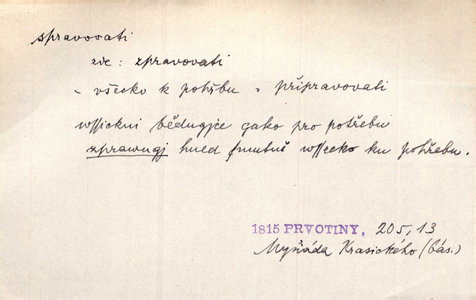 spravovati
zde: zpravovati
„ všecko k pohřbu „ připravovati
wssickni bědugjce gako pro potřebu
zprawugj hned smutně wssecko ku pohřebu.
1815 PRVOTINY, 205,13
Myňáda Krasického (bás.)